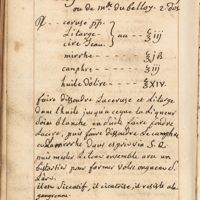 ou de Mr. du bellay. 2. dos
℞ ceruse pp.
Litarge
cire Jeau. } aa — ℥ iij
mirrhe — ℥ j ß
camphre — ℥ iij
huile d'olive — ℥ XIV.
faire dissoudre La ceruse et Litarge
dans l'huile jusqu'a ceque la liqueur
soins blanche en suite faire fondre
La cire, puis faire dissoudre de camphre
mirrhe dans esprit vin S. Q.
puis mesler Le tout ensemble avec un
bistortier pour former votre onguent S.
L'art.
il est Siccatif, il cicatrise, il resiste a la
gangrenne